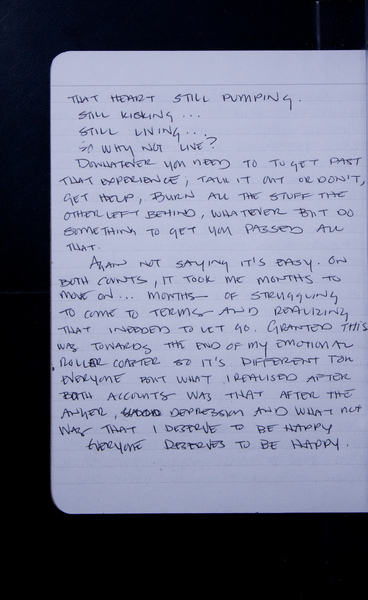 THAT HEART STILL PUMPING.
STILL KICKING...
STILL LIVING...
SO WHY NOT LIVE?
DO WHATEVER YOU NEED TO TO GET PAST
THAT EXPERIENCE; TALK IT OUT OR DON'T,
GET HELP, BURN ALL THE STUFF THE
OTHER LEFT BEHIND, WHATEVER BUT DO
SOMETHING TO GET YOU PASSED ALL
THAT.
AGAIN NOT SAYING IT'S EASY. ON
BOTH COUNTS, IT TOOK ME MONTHS TO
MOVE ON... MONTHS OF STRUGGLING
TO COME TO TERMS AND REALIZING
THAT I NEEDED TO LET GO. GRANTED THIS
WAS TOWARDS THE END OF MY EMOTIONAL
ROLLER COASTER SO IT'S DIFFERENT FOR
EVERYONE BUT WHAT I REALISED AFTER
BOTH ACCOUNTS WAS THAT AFTER THE
ANGER, DEPRESSION AND WHAT NOT
WAS THAT I DESERVE TO BE HAPPY
EVERYONE DESERVES TO BE HAPPY.